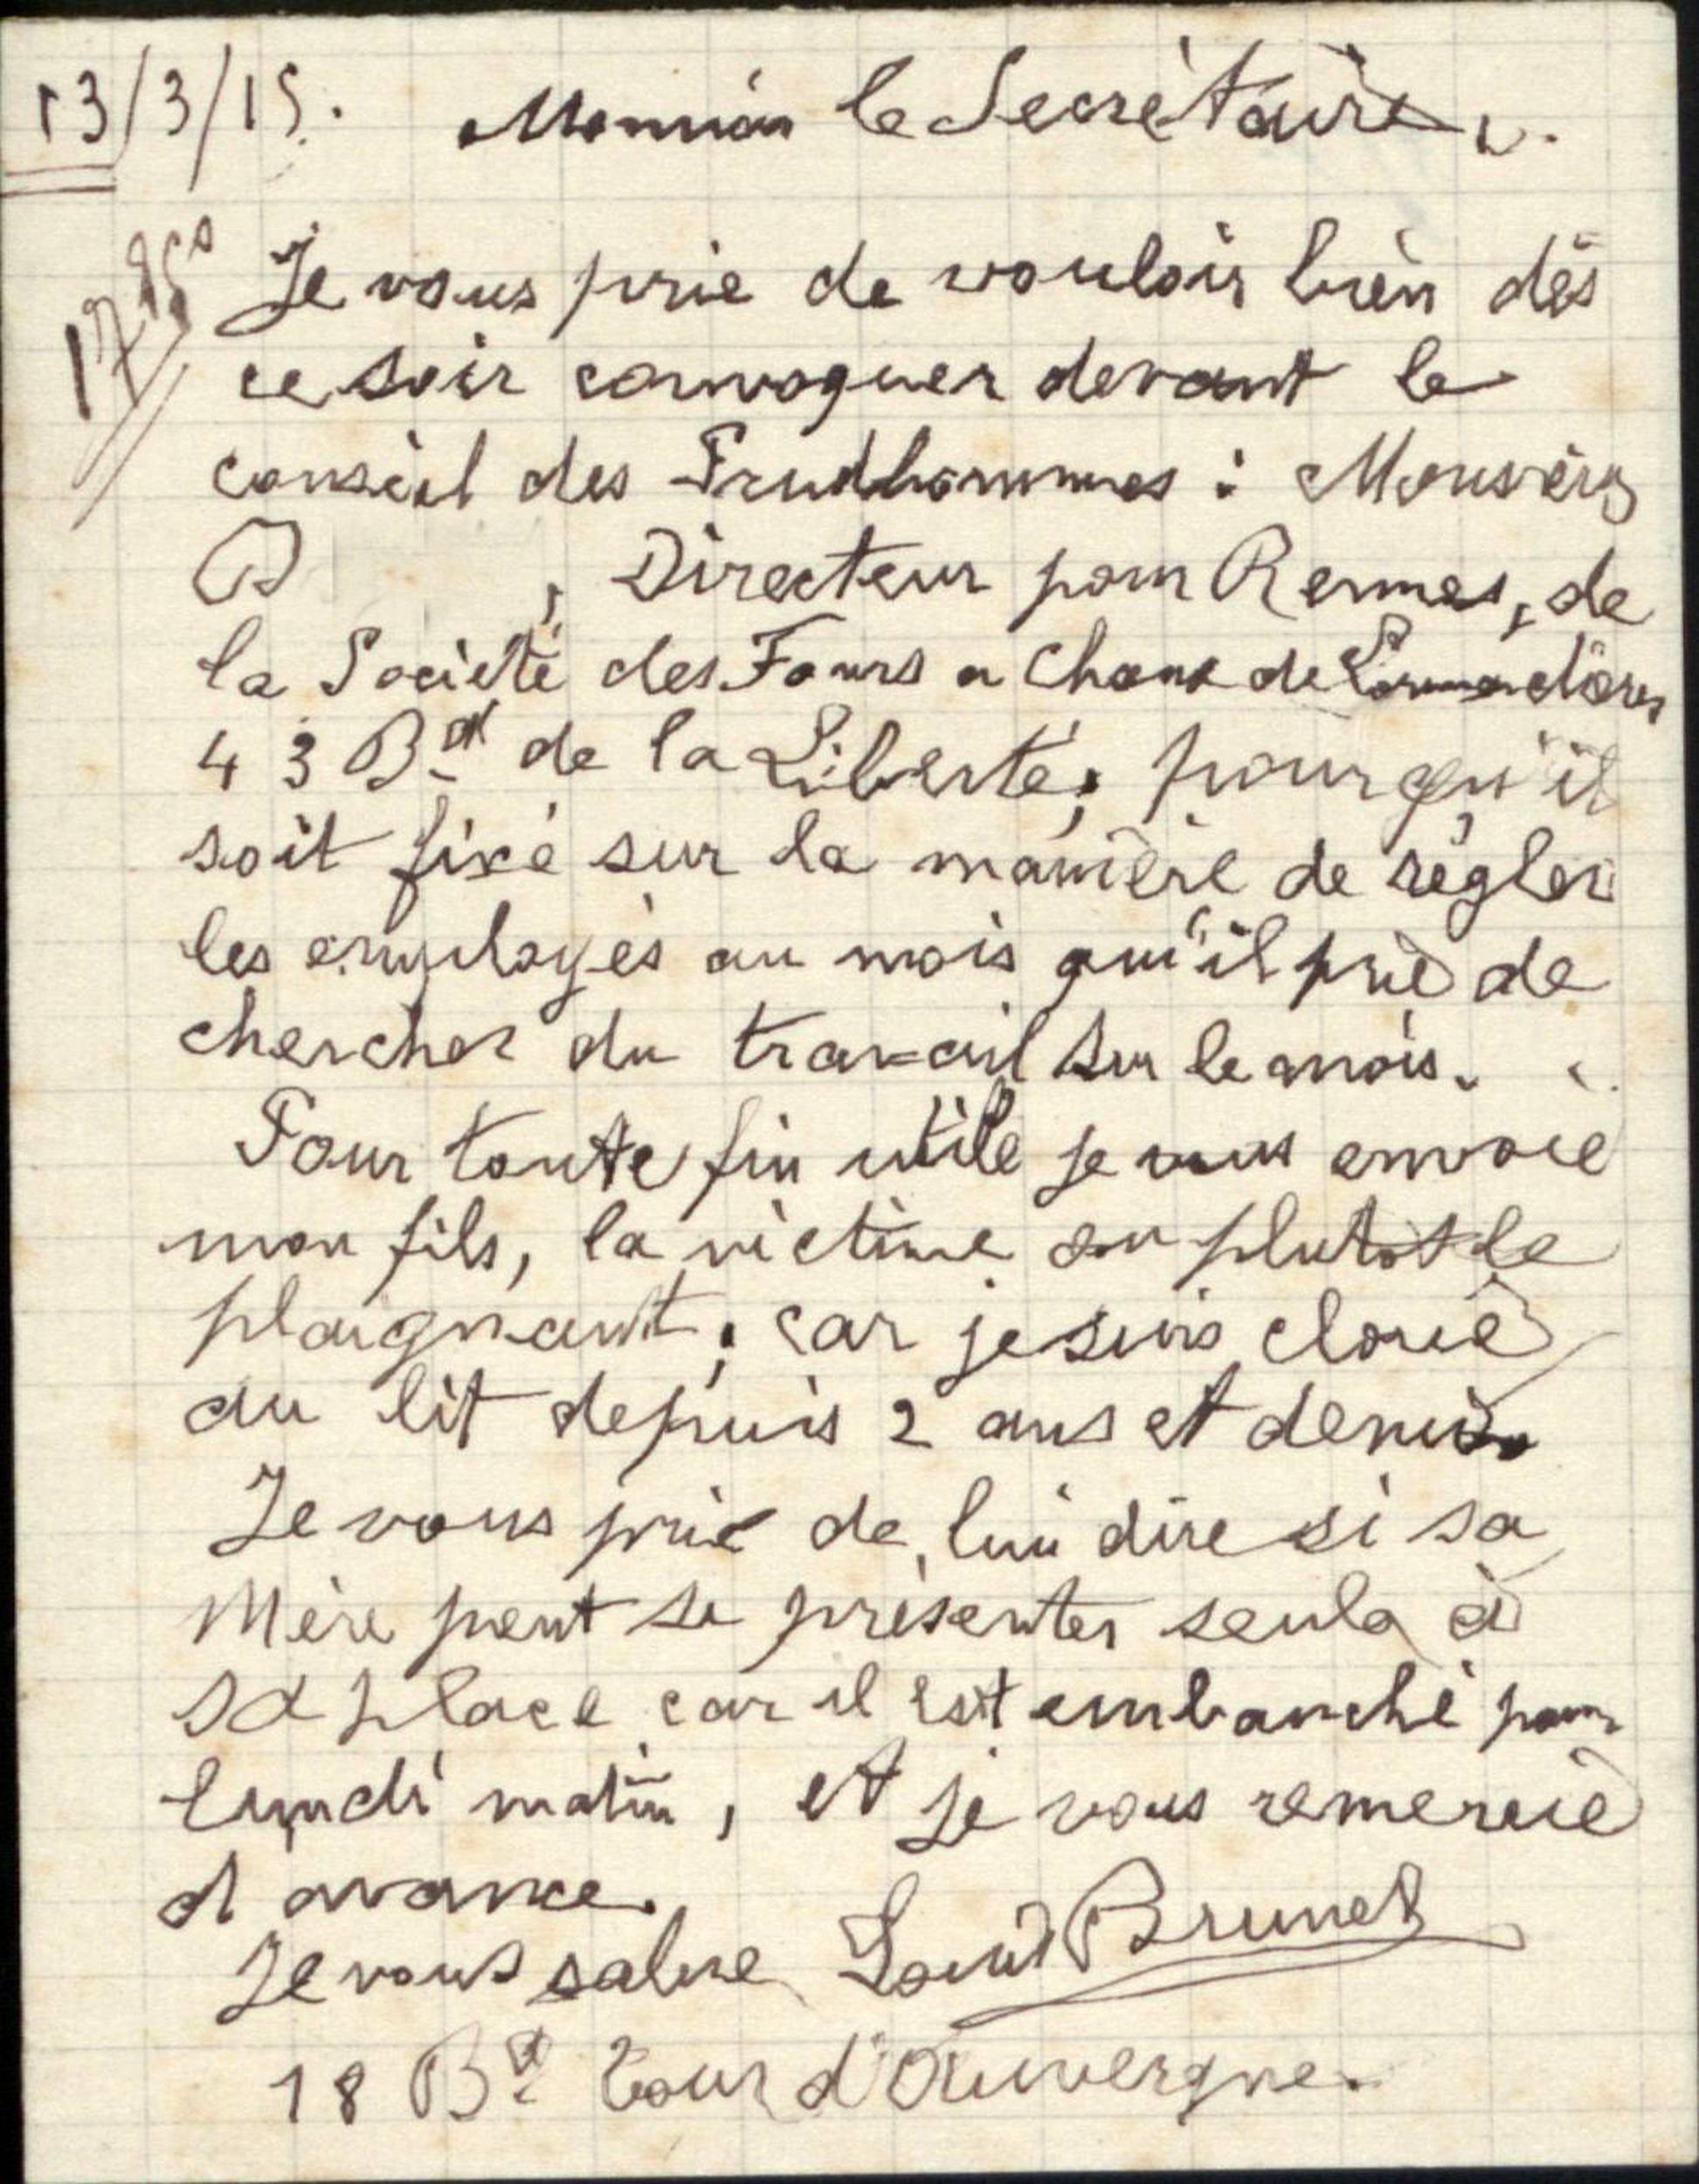 13/3/15. Monsieur le Secrétaire
Je vous prie de vouloir bien dès
ce soir convoquer devant le
conseil des Prudhommes : Monsieur
, Directeur pour Rennes, de
la Société des Fours a Chaux de
43 Bd de la Liberté, pour qu'il
soit fixé sur la manière de régler
les employés au mois qu'il prie de
chercher du travail sur le mois.
Pour toute fin utile je vous envoie
mon fils, la victime ou plutot le
plaignant, car je suis cloué
au lit depuis 2 ans et demi.
Je vous prie de lui dire si sa
Mère peut se présenter seule à
sa place car il est embauché pour
lundi matin, et je vous remercie
d avance.
Je vous salue Louis Brunet
18 Bd Tour d'Auvergne.